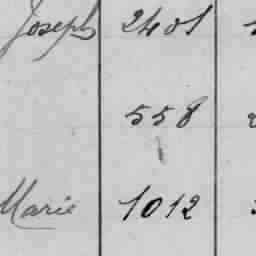 Joseph 2401
558
Marie 1012